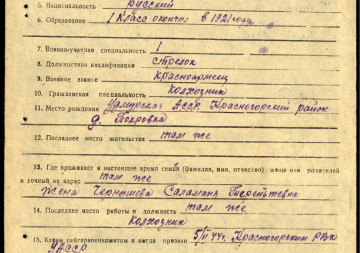 5. Национальность русский
6. Образование 1 класс окончил в 1921 году
7. Военно-учетная специальность 1
8. Должностная квалификация стрелок
9. Военное звание красноармеец
10. Гражданская специальность колхозник
11. Место рождения Удмурская АССР, Красногорский район
д. Покровка
12. Последнее место жительства там же
13. Где проживает в настоящее время семья (фамилия, имя, отчество) жены или родителей
и точный их адрес там же
жена Чернышева Саламанья Терентьевна
14. Последнее место работы и должность там же
колхозник
15. Каким райгорвоенкоматом и когда призван 5/II 44г. Красногорским РВК
УАССР